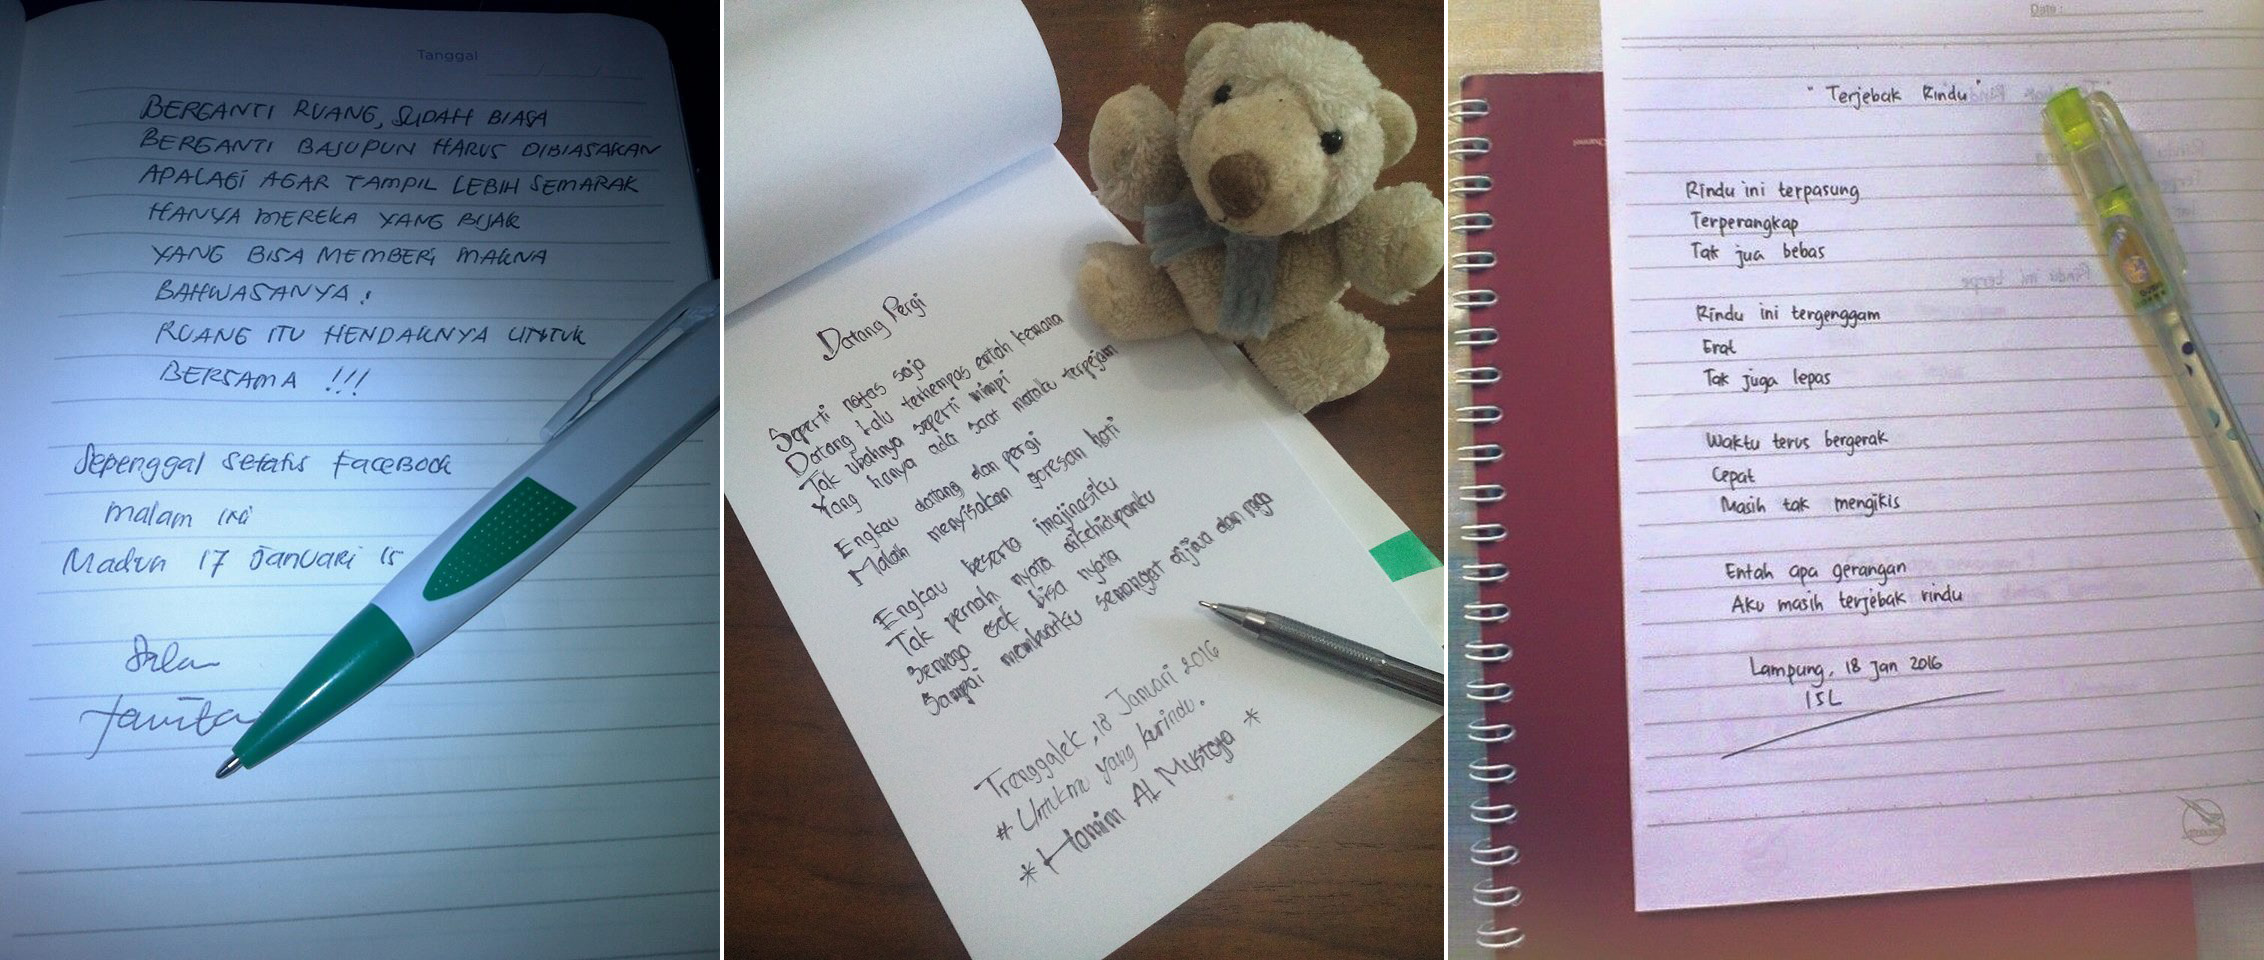 Tanggal
BERGANTI RUANG, SUDAH BIASA
BERGANTI BAJUPUN HARUS DIBIASAKAN
APALAGI AGAR TAMPIL LEBIH SEMARAK
HANYA MEREKA YANG BIJAK
YANG BISA MEMBERI MAKNA
BAHWASANYA :
RUANG ITU HENDAKNYA UNTUK
BERSAMA !!!
Sepenggal Setatus FaceBook
malam ini
Madiun 17 Januari 15
Salam
Datang Pergi
Seperti nafas saja
Datang lalu terhempas entah kemana
Tak ubahnya seperti mimpi
Yang hanya ada saat mataku terpejam
Engkau datang dan pergi
Malah menyisakan goresan hati
Engkau beserta imajinasiku
Tak pernah nyata dikehidupanku
Semoga esok bisa nyata
Sampai membuatku semangat dijiwa dan raga
Trenggalek, 18 Januari 2016
# Untukmu yang kurindu.
* Hamim Al Mustofa *
Date :
"Terjebak Rindu"
Rindu ini terpasung
Terperangkap
Tak jua bebas
Rindu ini tergenggam
Erat
Tak juga lepas
Waktu terus bergerak
Cepat
Masih tak mengikis
Entah apa gerangan
Aku masih terjebak rindu
Lampung, 18 Jan 2016
ISL